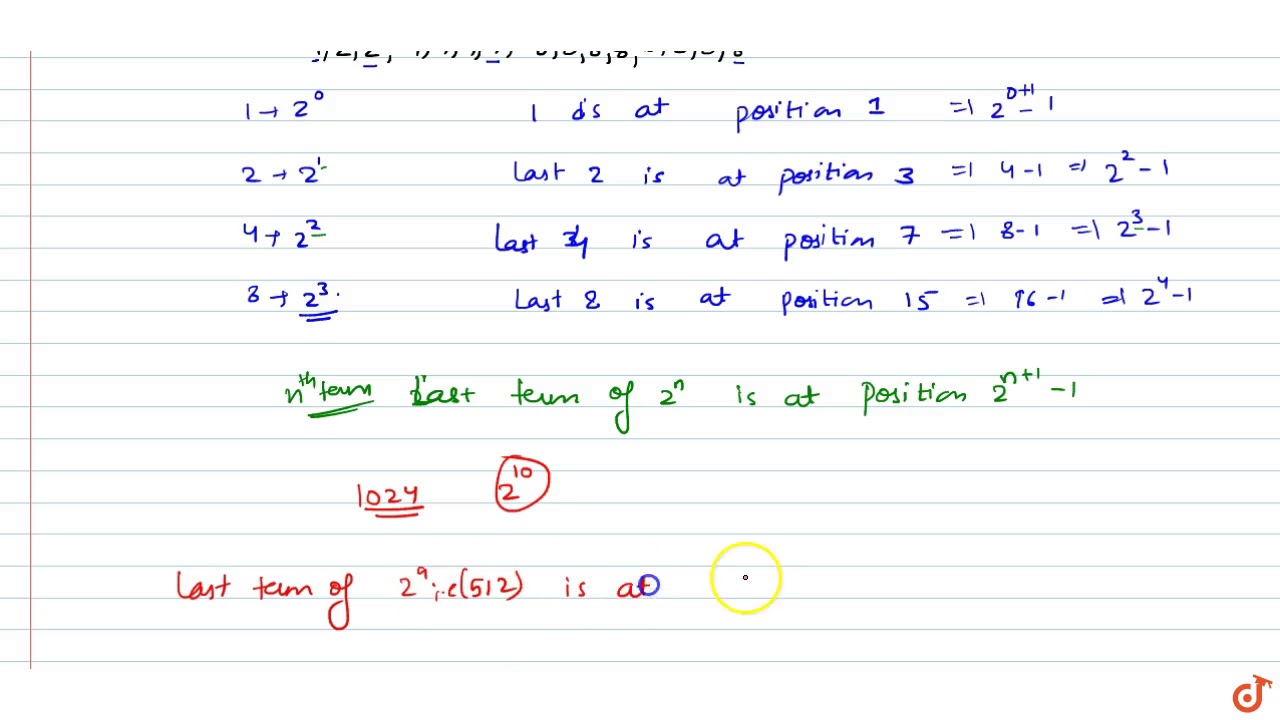 1 → 2⁰ 1 is at position 1 => 2⁰⁺¹ - 1
2 → 2¹ Last 2 is at position 3 => 4-1 => 2² - 1
4 → 2² Last 4 is at position 7 => 8-1 => 2³ - 1
8 → 2³. Last 8 is at position 15 => 16-1 => 2⁴ - 1
nᵗʰ term Last term of 2ⁿ is at position 2ⁿ⁺¹ - 1
1024 2¹⁰
Last term of 2⁹ i.e (512) is at